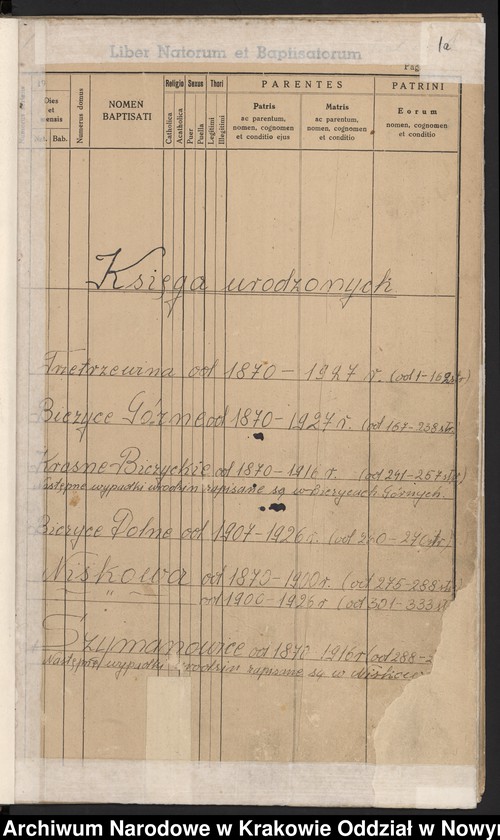 1a
Liber Natorum et Baptisatorum
Pag
Dies et mensis
Nat. Bab.
Numerus domus
NOMEN BAPTISATI
Religio
Catholica
Acatholica
Sexus
Puer
Puella
Thori
Legitimi
Illegitimi
PARENTES
Patris
ac parentum, nomen, cognomen et conditio ejus
Matris
ac parentum, nomen, cognomen et conditio
PATRINI
Eorum
nomen, cognomen et conditio
Księga urodzonych
Trzetrzewina od 1870 - 1927 r. (od 1-162 str)
Biczyce Górne od 1870-1927 r. (od 167-238 str.
Krasne-Biczyckie od 1870-1916 r. (od 241-257 str)
Następne wypadki urodzin zapisane są w Biczycach Górnych.
Biczyce Dolne od 1907-1926 r. (od 260-270 str)
Niskowa od 1870-1900 r. (od 275-288 str)
" od 1900-1926 r (od 301-333 st
Szymanowice od 1870 1916 r (od 288-2
Następne wypadki urodzin zapisane są w Niskow
Archiwum Narodowe w Krakowie Oddział w Nowy